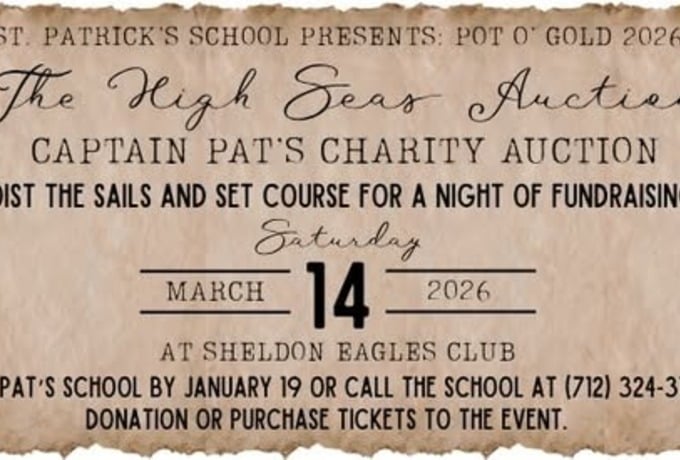 ST. PATRICK'S SCHOOL PRESENTS: POT O' GOLD 2026
The High Seas Auction
CAPTAIN PAT'S CHARITY AUCTION
OIST THE SAILS AND SET COURSE FOR A NIGHT OF FUNDRAISING
Saturday
MARCH 14 2026
AT SHELDON EAGLES CLUB
PAT'S SCHOOL BY JANUARY 19 OR CALL THE SCHOOL AT (712) 324-3
DONATION OR PURCHASE TICKETS TO THE EVENT.